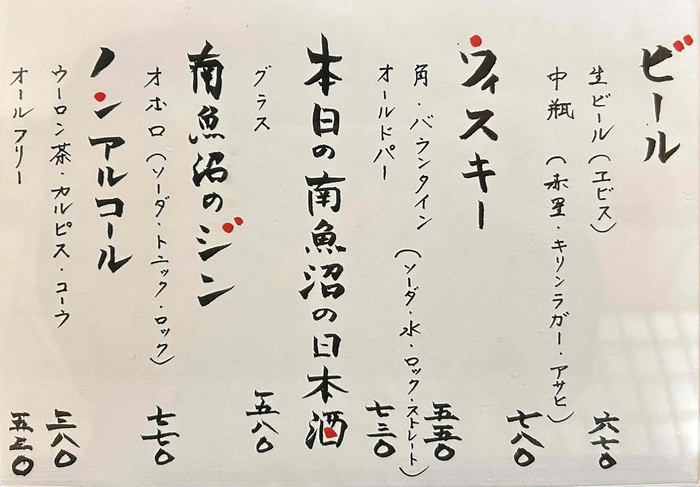 ビール
生ビール(エビス) 六七〇
中瓶(赤星・キリンラガー・アサヒ) 七八〇
ウィスキー
角・バランタイン(ソーダ・水・ロック・ストレート) 五五〇
オールドパー 七三〇
本日の南魚沼の日本酒
グラス 一五八〇
南魚沼のジン
オホロ(ソーダ・トニック・ロック) 七七〇
ノンアルコール
ウーロン茶・カルピス・コーラ 三八〇
オールフリー 五三〇